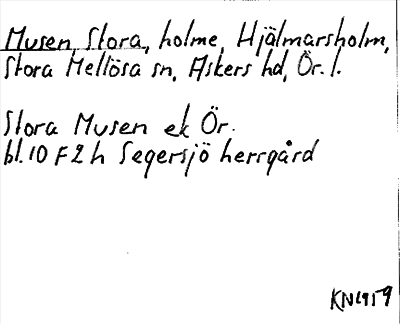 Musen, Stora, holme, Hjälmarsholm,
Stora Mellösa sn, Askers hd, Ör. l.
Stora Musen ek Ör.
bl. 10 F 2 h Segersjö herrgård
KN 1959